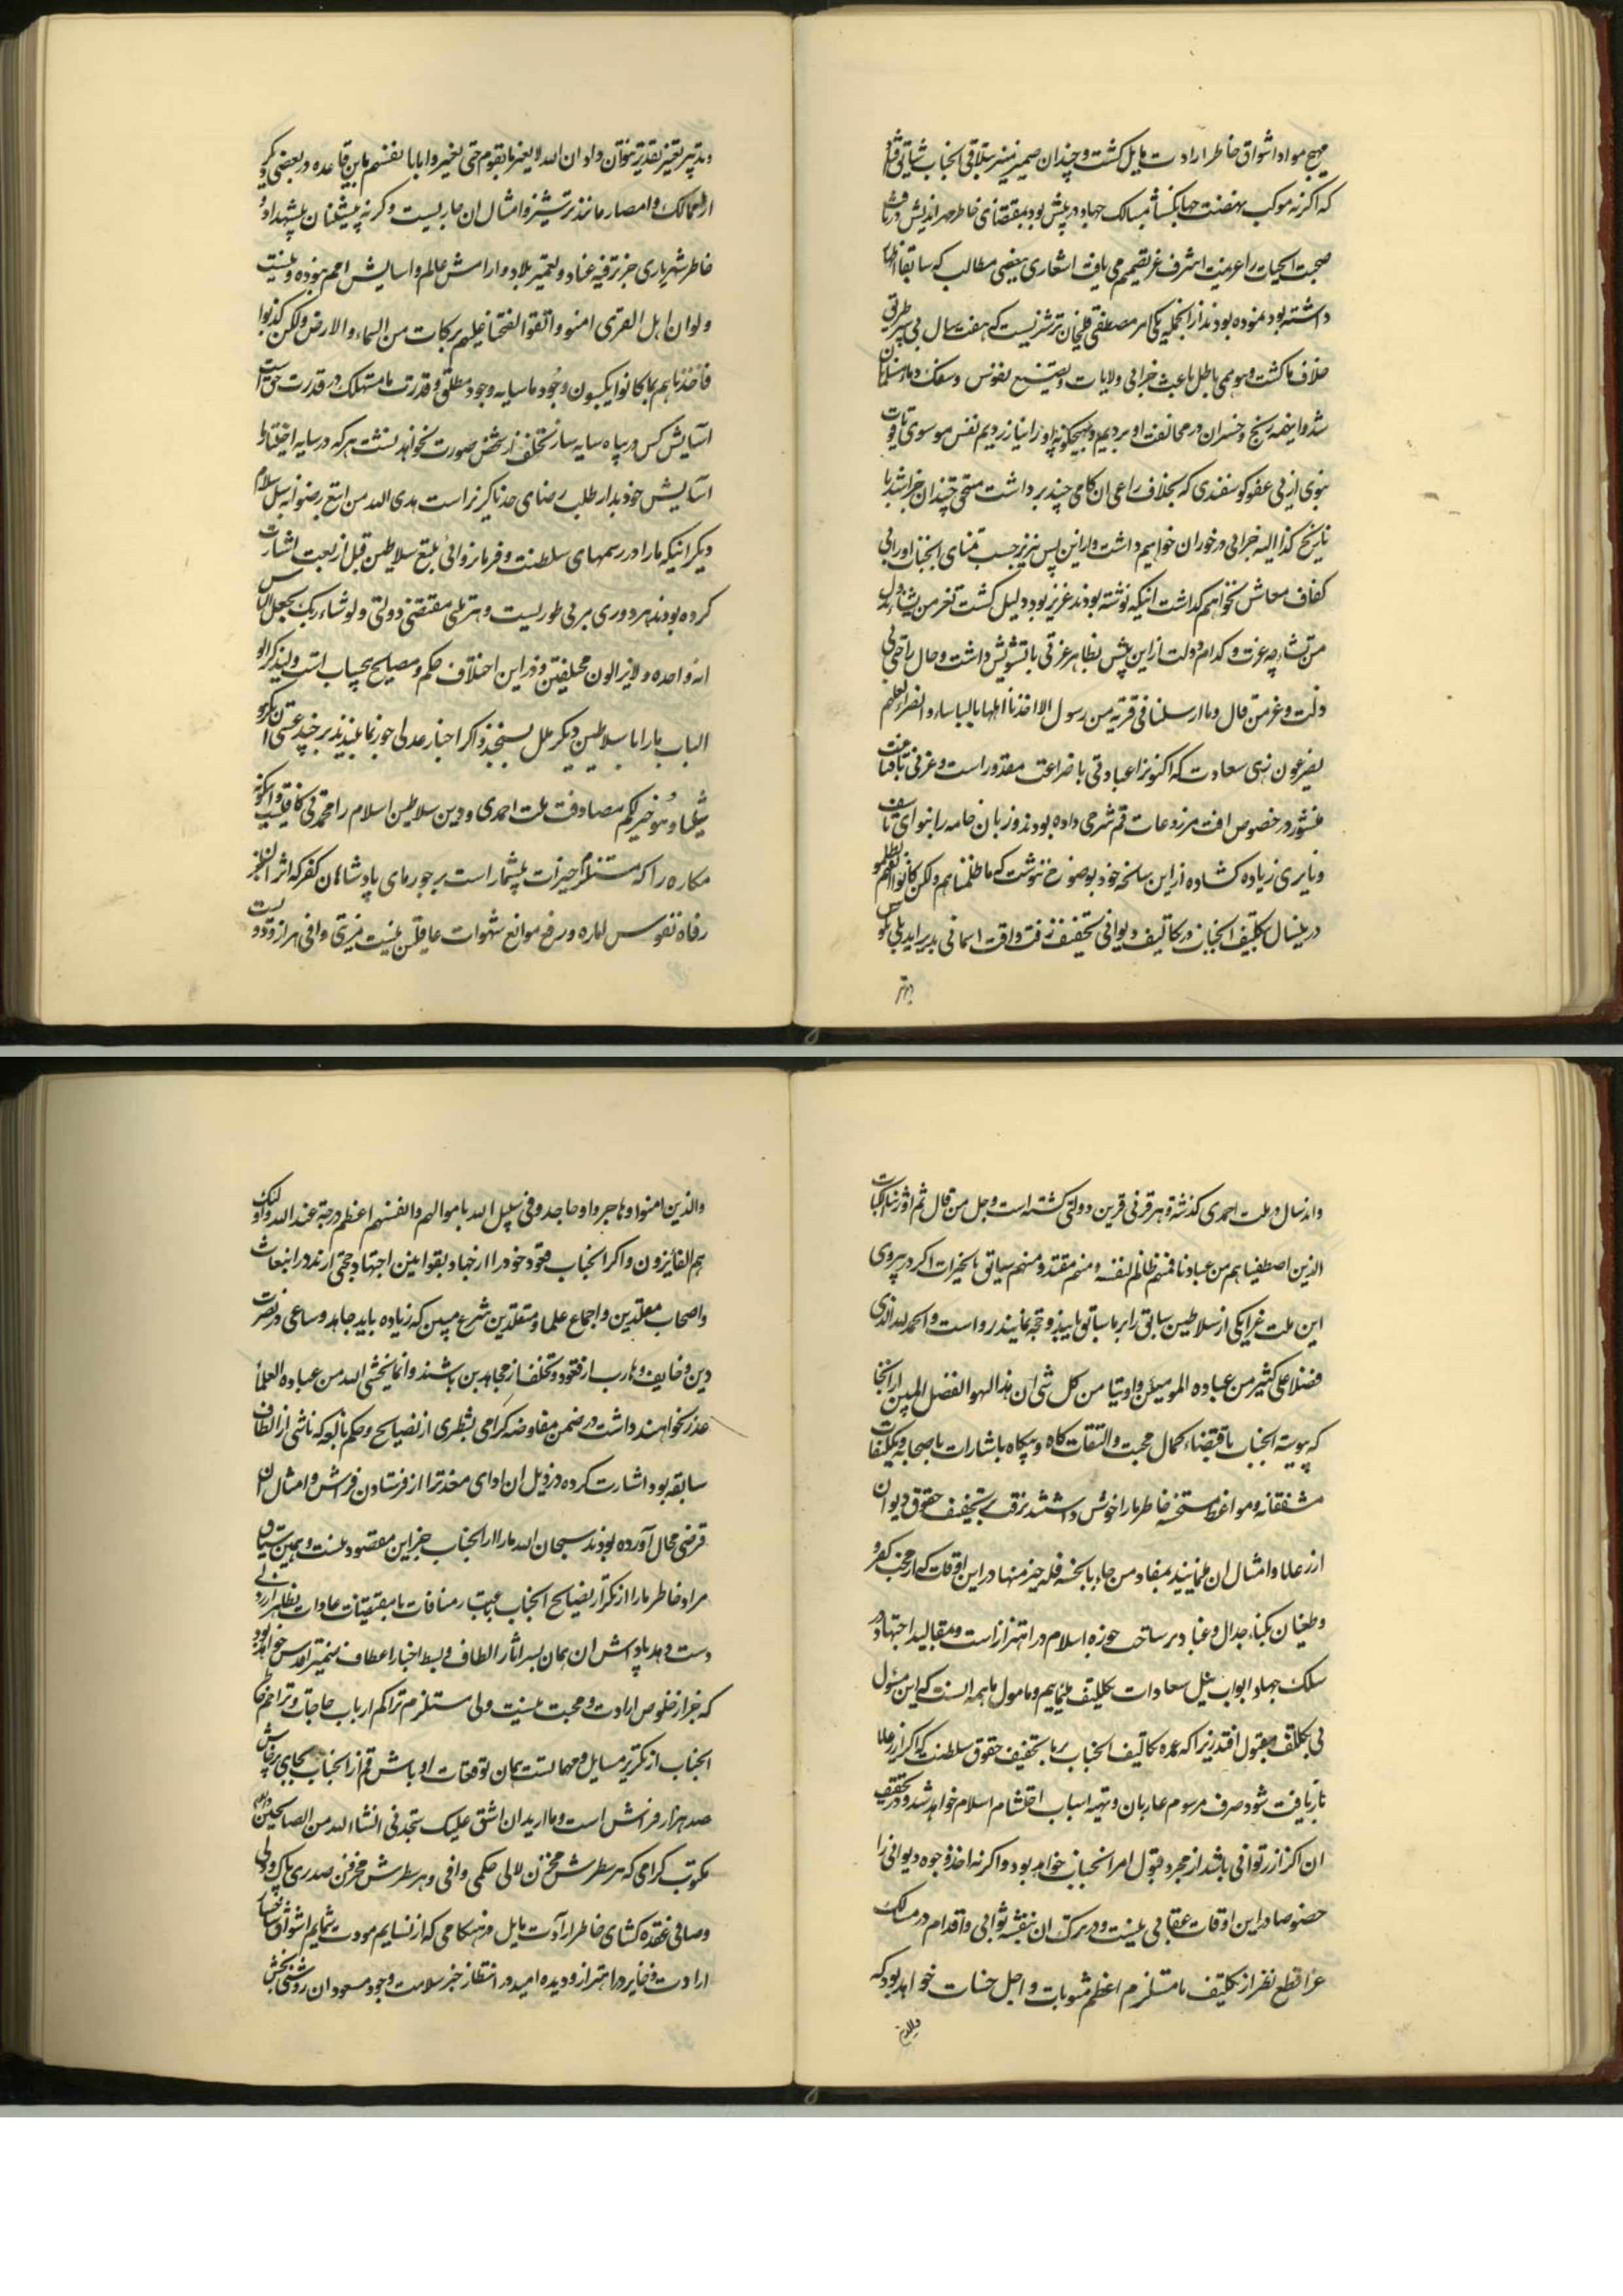 مهیج مواد اشواق خاطر ارادت مایل گشت و چندان ضمیر منیر بتلاقی انجناب شایق افتاد
که اگرنه موکب بهضت جهانگشا بمسالک جهاد در پیش بود بمقتضای خاطر مهر اندیش دریافت
صحبت انجناب را عزیمت اشرف غر تقمیم می یافت اشعاری ببعضی مطالب که سابقا اظهار
داشته بود نموده بودند از انجمله یکی امر مصطفی قلیخان ترشیزیست که هفت سال بی سر طریق
خلاف ما گشت و بوهمی باطل باعث خرابی ولایات و تضییع نفوس و سفک دماء مسلمانان
شد و اینهمه رنج و خسران در مخالفت او بردیم و بهیچگونه او را نیازردیم نفس موسوی تافت
نبوی از پی عفو گوسفندی که بخلاف راعی ان گامی چند برداشت متحمل چندان خراشید با
کفاف معاش نخواهیم گذاشت اینکه نوشته بودند عزیز بود ذلیل گشت تعز من تشاء و تذل
من تشاء چه عزت و کدام ذلت از این پیش بظاهر عزتی با تشویش داشت و حال راحتی بی
ذلت و عز من قال و ما ارسلنا فی قریه من رسول الا اخذنا اهلها بالباساء و الضراء لعلهم
یضرعون زهی سعادت که اکنونرا عبادتی با ضراعت مقدور است و عزتی با قناعت
میسور در خصوص افت مزروعات قم شرحی داده بودند و زبان خامه را بنوای تاسف
و نایری زیاده گشاده از این سانحه خود بوضوح نوشت که ما ظلمناهم ولکن کانوا انفسهم یظلمون
در هر سال بتکلیف انجناب در تکالیف دیوانی تخفیف رفت و افت اسمانی پدیر اید بلی نفوس
بهتر
و بد تبریر تغییر تقدیر نتوان داد ان الله لا یغیر ما بقوم حتی یغیروا ما بانفسهم باین قاعده در بعضی دیگر
از ممالک و امصار مانند ترشیز و امثال ان جاریست و گرنه پیشنهاد
خاطر شهریاری جز ترفیه عباد و تعمیر بلاد و ارامش عالم و اسایش امم نبوده و نیست
ولو ان اهل القری امنوا واتقوا لفتحنا علیهم برکات من السماء والارض ولکن کذبوا
فاخذناهم بما کانوا یکسبون وجود ما سایه وجود مطلق و قدرت ما مستهلک در قدرت حق است
اسایش کس در پناه سایه ساز تخلف از شخص صورت نخواهد بست هر که در سایه احتیاط
اسایش خود بدارد طلب رضای خدا ناگزیر است یهدی الله من اتبع رضوانه سبل السلام
دیگر اینکه ما را در رسمهای سلطنت و فرمانروائی بتتبع سلاطین قبل از بعثت اشارت
کرده بودند هر دوری مربی طوریست و هر ملتی مقتضی دولتی ولو شاء ربک لجعل الناس
امة واحده ولا یزالون مختلفین و در این اختلاف حکم و مصالح بیحساب است ولیذکر اولو
الباب ما را با سلاطین دیگر ملل بسنجند و اگر اخبار عدلی جور نما بینند بر خیزند عسی ان تکرهوا
شیئا و هو خیر لکم مصادفت ملت احمدی و دین سلاطین اسلام را محمدتی کافیست و اینگونه
مکاره را که مستلزم خیرات بیشمار است بر جورهای پادشاهان کفر که اثر ان جز
رفاه نفوس اماره و رفع موانع شهوات عاقلین نیست مزیتی وافی هزار و دویست
و اند سال در ملت احمدی گذشته و هر قرنی قرین دولتی گشته است و جل من قال ثم اورثنا الکتاب
الذین اصطفینا من عبادنا فمنهم ظالم لنفسه و منهم مقتصد و منهم سابق بالخیرات اگر در پیروی
این ملت غرا یکی از سلاطین سابق را بر ما سابق یابند و ترجیح نمایند رواست و الحمد لله الذی
فضلنا علی کثیر من عباده المومنین و اوتینا من کل شی ان هذا لهو الفضل المبین از انجا
که پیوسته انجناب باقتضاء کمال محبت و التفات گاه و بیگاه باشارات ناصحانه و تکلیفات
مشفقانه و مواعظ مستحسنه خاطر ما را خوش داشتند ترقب تخفیف حقوق دیوان
از رعایا و امثال ان مینمایند بمفاد من جاء بالحسنه فله خیر منها در این اوقات که ارباب کفر و
و طغیان بکینه جدال و عناد بر ساحت حوزه اسلام در اهتزاز است و مقالید اجتهاد در
سلک جهاد ابواب نیل سعادات تکلیف مینماییم و مامول ما همه انست که این مسئول
بی تکلف مقبول افتد زیرا که عمده تکالیف انجناب بر ما تخفیف حقوق سلطنت که اگر از رعایا
بازیافت شود صرف مرسوم غازیان و تهیه اسباب احتشام اسلام خواهد شد و در تخفیف
ان اگر از رتوافی باشد از مجرد قبول امر انجناب خواهد بود و اگرنه اخذ وجوه دیوانی را
خصوصا در این اوقات عقابی نیست و در ترک ان بنفسه ثوابی و اقدام در مسالک
غزا قطع نظر از تکلیف ما مستلزم اعظم مثوبات و اجل حسنات خواهد بود که
والذین
والذین امنوا و هاجروا و جاهدوا فی سبیل الله باموالهم و انفسهم اعظم درجة عند الله و اولئک
هم الفائزون و اگر انجناب قعود خود را از جهاد بقوانین اجتهاد حجتی ارند در انبعاث
و اصحاب مقلدین و اجماع علما و متقلدین شرع مبین که زیاده باید جاهد و ساعی در نصرت
دین و خایف و هارب از قعود و تخلف از مجاهدین باشند و انما یخشی الله من عباده العلماء
عذر نخواهند داشت در ضمن مفاوضه گرامی بشطری از نصایح و حکم بالغه که ناشی از الطاف
سابقه بود اشارت کرده در ذیل ان ادای معذرتی از فرستادن فراش و امثال ان
فرضی محال آورده بودند سبحان الله ما را از انجناب جز این مقصود نیست و همین سیاق
مراد خاطر ما را از تکرار نصایح انجناب بر منافات با مقتضیات عادات بظاهر
دست دهد پاداش ان همان بسر اثار الطاف و بسط اخبار اعطاف ضمیر اقدس خواهد بود
که جز از خلوص ارادت و محبت نیست ولی مستلزم تراکم ارباب حاجات و تزاحم
انجناب از تکریر مسایل و مهماتست بمان توقعات اوباش قم از انجناب بجای پرخاش
صد هزار فراش است و ما ارید ان اشق علیک ستجدنی انشاالله من الصالحین دایم
مکتوب گرامی که هر سطرش مخزن لالی حکمی وافی و هر سطرش مخزن صدری پاک و دلی
و صافی عقده گشای خاطر ارادت مایل و هنگامی که از نسایم مودت شمایم اشواق
ارادت ذخایر در اهتزاز و دیده امید در انتظار خبر سلامت وجود مسعود ان روشنی بخش